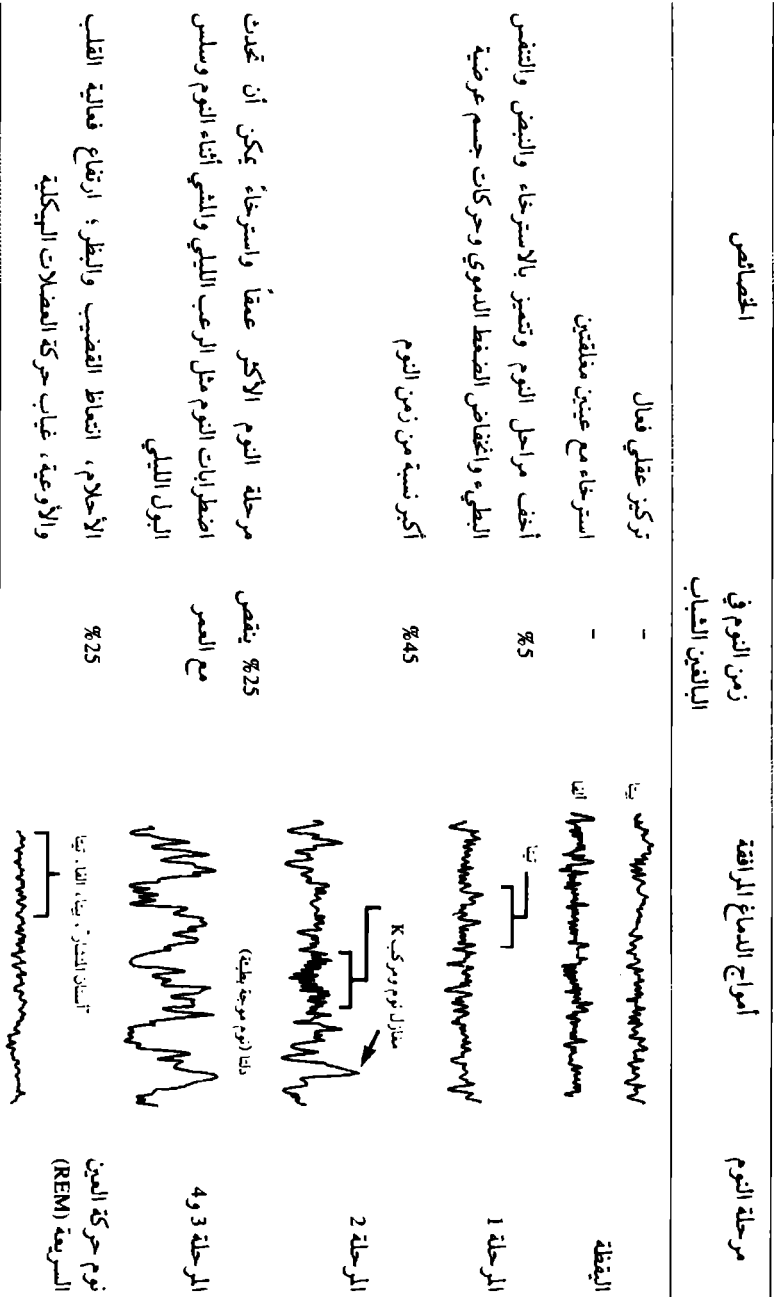 مرحلة النوم
أمواج الدماغ المرافقة
زمن النوم في
البالغين الشباب
الخصائص
اليقظة
بيتا
-
تركيز عقلي فعال
ألفا
-
استرخاء مع عينين مغلقتين
المرحلة 1
تيتا
%5
أخف مراحل النوم وتتميز بالاسترخاء والنبض والتنفس
البطيء وانخفاض الضغط الدموي وحركات جسم عرضية
المرحلة 2
مغازل نوم ومركب K
%45
أكبر نسبة من زمن النوم
المرحلة 3 و 4
دلتا (نوم موجة بطيئة)
%25 ينقص
مع العمر
مرحلة النوم الأكثر عمقاً واسترخاءً يمكن أن تحدث
اضطرابات النوم مثل الرعب الليلي والمشي أثناء النوم وسلس
البول الليلي
نوم حركة العين
السريعة (REM)
"أسنان المنشار"، بيتا، ألفا، تيتا
%25
الأحلام، انتعاظ القضيب والبظر؛ ارتفاع فعالية القلب
والأوعية، غياب حركة العضلات الهيكلية